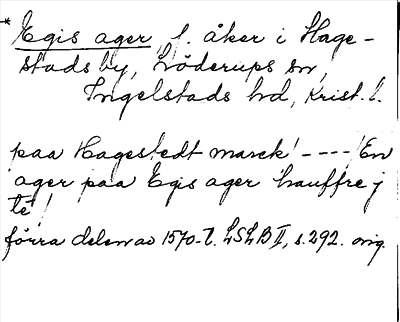 * Egis ager, f. åker i Hage-
stads by, Löderups sn,
Ingelstads hd, Krist. l.
"paa Hagestedt marck! - - - - ! En
ager paa Egis ager hauffre j
te"!
förra delen av 1570-t. LSLB II, s. 292. orig.